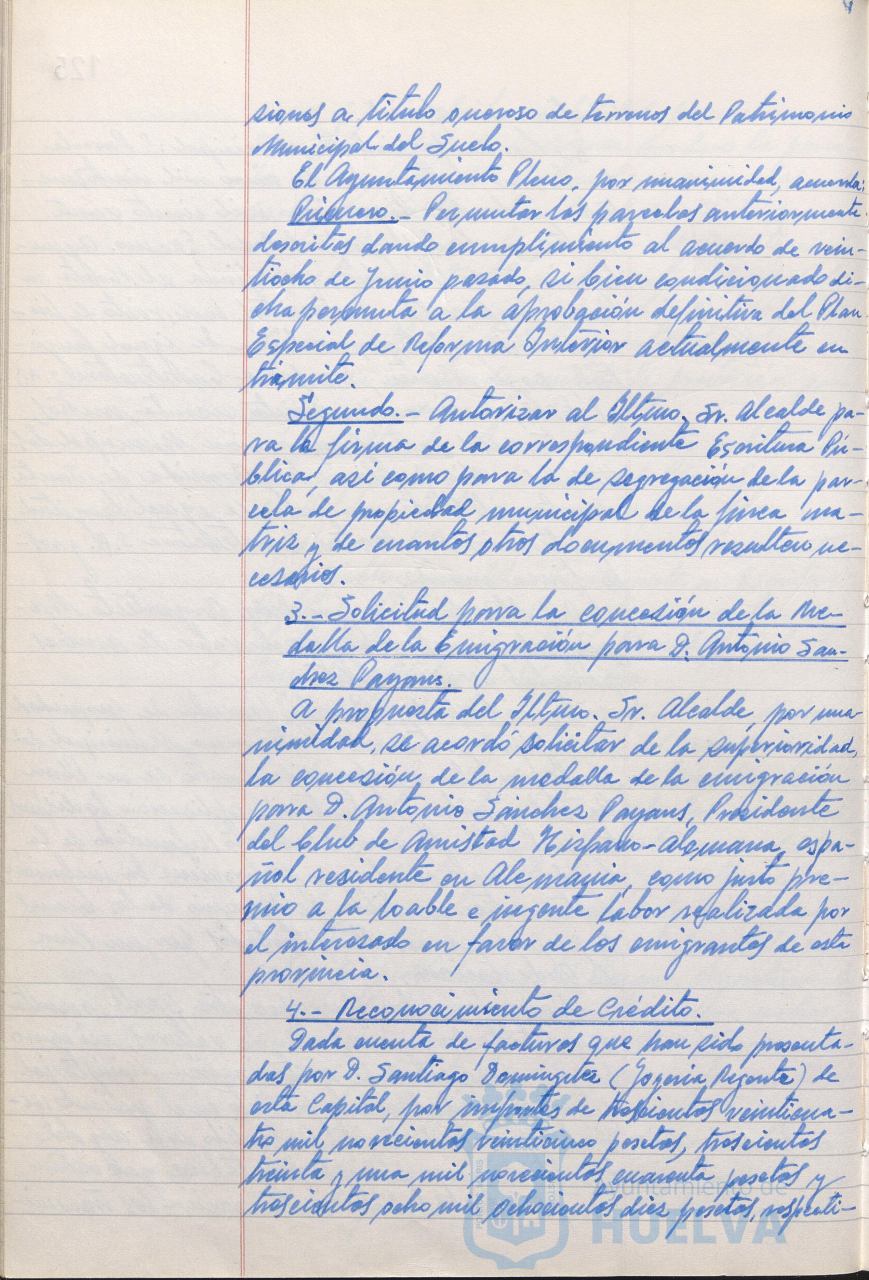 siones a título oneroso de terrenos del Patrimonio
Municipal del Suelo.
El Ayuntamiento Pleno, por unanimidad, acuerda:
Primero.- Permutar las parcelas anteriormente
descritas dando cumplimiento al acuerdo de vein-
tiocho de Junio pasado, si bien condicionado di-
cha permuta a la aprobación definitiva del Plan
Especial de Reforma Interior actualmente en
trámite.
Segundo.- Autorizar al Iltmo. Sr. Alcalde pa-
ra la firma de la correspondiente Escritura Pú-
blica, así como para la de segregación de la par-
cela de propiedad municipal de la finca ma-
triz y de cuantos otros documentos resulten ne-
cesarios.
3.- Solicitud para la concesión de la Me-
dalla de la Emigración para D. Antonio San-
chez Payans.
A propuesta del Iltmo. Sr. Alcalde, por una-
nimidad, se acordó solicitar de la superioridad,
la concesión de la medalla de la emigración
para D. Antonio Sanchez Payans, Presidente
del Club de Amistad Hispano-Alemana, espa-
ñol residente en Alemania, como justo pre-
mio a la loable e ingente labor realizada por
el interesado en favor de los emigrantes de esta
provincia.
4.- Reconocimiento de Crédito.
Dada cuenta de facturas que han sido presenta-
das por D. Santiago (Joyería Regente) de
esta Capital, por importes de trescientas veinticua-
tro mil novecientas veinticinco pesetas, trescientas
treinta y una mil novecientas cuarenta pesetas y
trescientas ocho mil ochocientas diez pesetas, respecti-
Ayuntamiento de
HUELVA
125